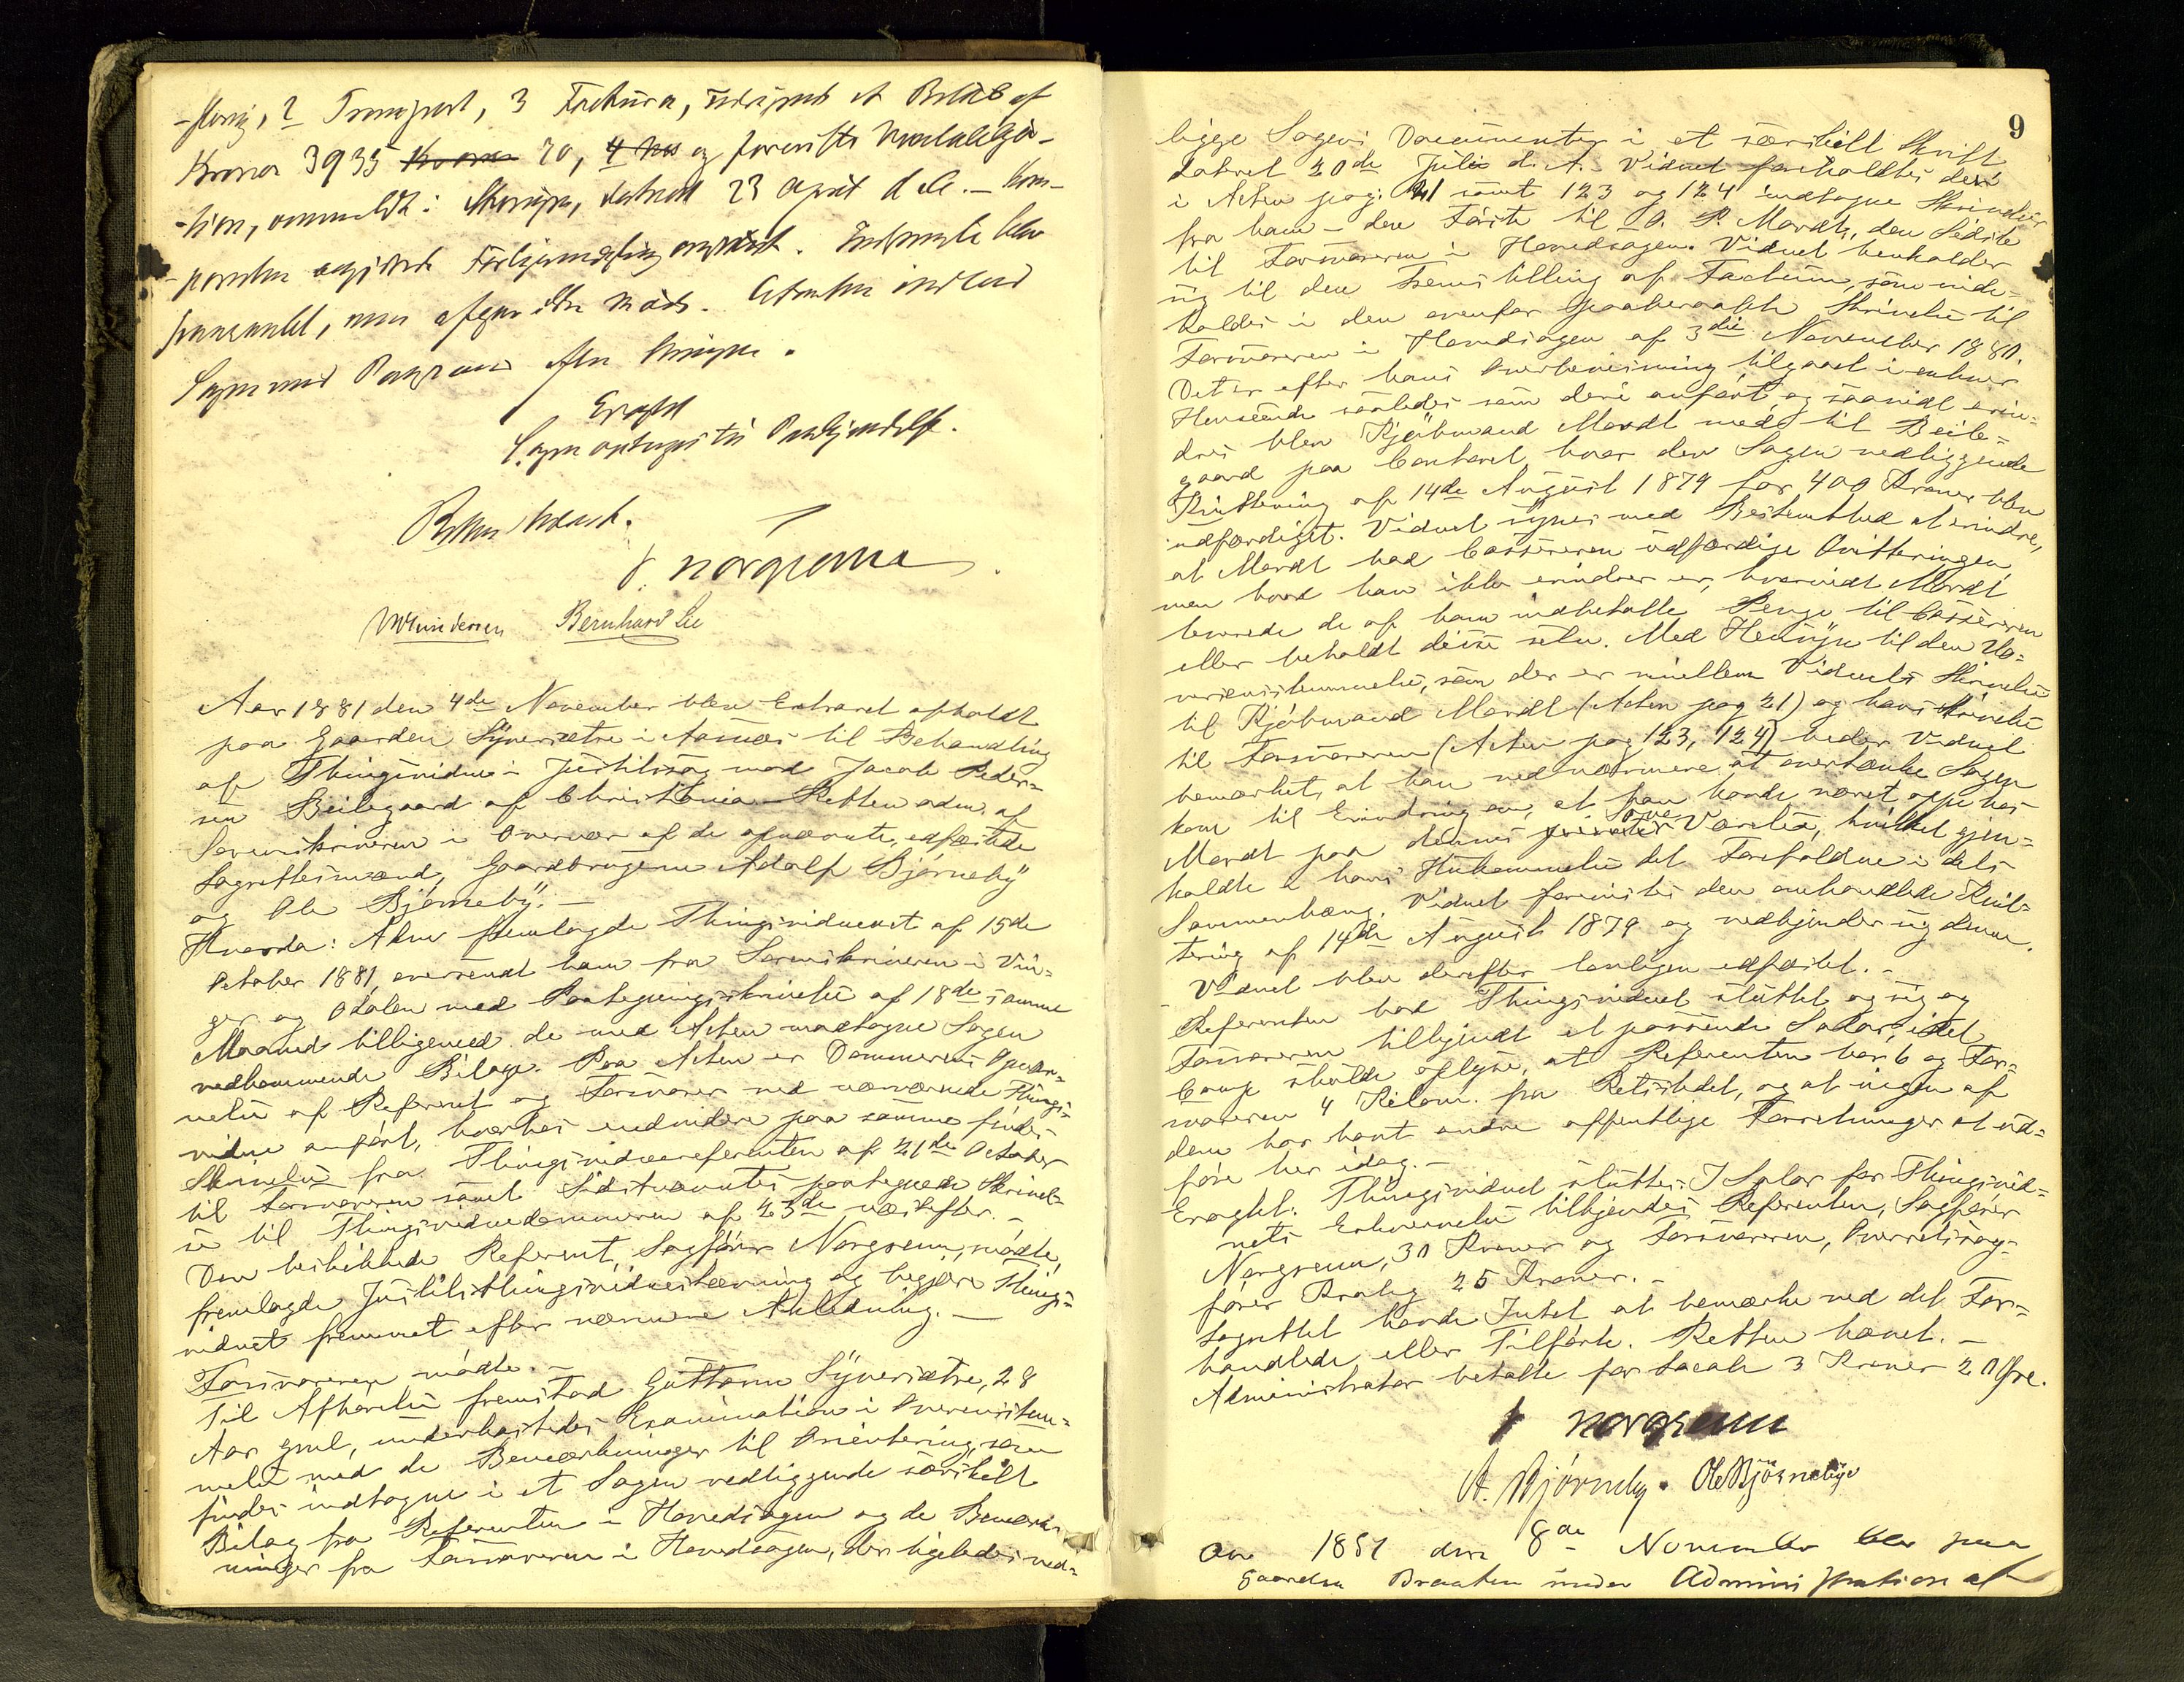 2 Transport, 3 Factura, et Beløb af
Kroner 3935 Kroner 70, og
-tion, dateret 23 April d. A. - Kom-
-parenten
Citanten indlod
Sagen med Paastand efter
Eragtet
Sagen optages til Paakjendelse.
V. Norgrenn
Gundersen Bernhard Lie
Aar 1881 den 4de November blev Extraret afholdt
paa Gaarden Syversætre i Aasnæs til Behandling
af Thingsvidne i Justitssag mod Jacob Peder-
sen Beilegaard af Christiania. Retten adm. af
Sorenskriveren i Overvær af de opnævnte, edfæstede
Lagrettesmænd, Gaardbrugerne Adolf Bjørneby
og Ole Bjørneby. -
Hvorda: Adm. fremlagde Thingsvidneact af 15de
October 1881, oversendt ham fra Sorenskriveren i Vin-
ger og Odalen med Paategningsskrivelse af 18de samme
Maaned tilligemed de med Acten modtagne Sagen
vedkommende Bilage. Paa Acten er Dommerens Opnæv-
nelse af Referent og Forsvarer ved nærværende Things-
vidne anført, hvorhos endvidere paa samme findes
Skrivelse fra Thingsvidnereferenten af 21de October
til Forsvareren samt Sidstnævntes paategnede Skrivel-
se til Thingsvidnedommeren af 23de næstefter. -
Den beskikkede Referent, Sagfører Norgrenn, mødte,
fremlagde Justitsthingsvidnestævning og begjærte Things-
vidnet fremmet efter nærmere Anledning. -
Forsvareren mødte. -
Til Afhørelse fremstod Guttorm Syversætre, 28
Aar gml, underkastedes Examination i Overensstem-
melse med de Bemærkninger til Orientering, som
findes indtagne i et Sagen vedliggende særskilt
Bilag fra Referenten i Hovedsagen og de Bemærk-
ninger fra Forsvareren i Hovedsagen, der ligeledes ved-
9
ligge Sagens Documenter i et særskilt Skrift
dateret 20de Juli d. A. Vidnet foreholdtes de
i Acten pag: 21 samt 123 og 124 indtagne Skrivelser
fra ham - den Første til O. P. Mordt, den Sidste
til Forsvareren i Hovedsagen. Vidnet henholder
sig til den Fremstilling af Factum, som inde-
holdes i den ovenfor paaberaabte Skrivelse til
Forsvareren i Hovedsagen af 3die November 1880.
Det er efter hans Overbevisning tilgaaet i enhver
Henseende saaledes som deri anført og saavidt erin-
dres blev Kjøbmand Mordt med til Beile-
gaard paa Contoret hvor den Sagen vedliggende
Kvittering af 14de August 1879 for 400 Kroner blev
udfærdiget. Vidnet synes med Bestemthed at erindre,
at Mordt bad Cassereren udfærdige Qvitteringen,
men hvad han ikke erindrer er, hvorvidt Mordt
leverede de af ham indbetalte Penge til Cassereren
eller beholdt disse selv. Med Hensyn til den Uo-
verensstemmelse, som der er mellem Vidnets Skrivelse
til Kjøbmand Mordt (Acten pag 21) og hans Skrivelse
til Forsvareren (Acten pag 123, 124) beder Vidnet
bemærket, at han ved nærmere at overtænke Sagen
kom til Erindring om, at han havde været oppe hos
Mordt paa dennes private Værelse, hvilket gjen-
kaldte i hans Hukommelse det Forefaldne i dets
Sammenhæng. Vidnet forevistes den omhandlede Kvit-
tering af 14de August 1879 og vedkjender sig denne.
Vidnet blev derefter lovligen edfæstet. -
Referenten bad Thingsvidnet sluttet og sig og
Forsvareren tilkjendt et passende Salær, idet
Comp. skulde oplyse, at Referenten har 6 og For-
svareren 4 Kilom. fra Retsstedet, og at ingen af
dem har havt andre offentlige Forretninger at ud-
føre her idag. -
Eragtet. Thingsvidnet sluttes. I Salær for Thingsvid-
nets Erhvervelse tilkjendes Referenten, Sagfører
Norgrenn, 30 Kroner og Forsvareren, Overretssag-
fører Krabig 25 Kroner. -
Lagrettet havde Intet at bemærke ved det For-
handlede eller Tilførte. Retten hævet. -
Administrator betalte for Locale 3 Kroner 20 Øre.
Norgrenn
A. Bjørneby. Ole Bjørneby
Aar 1881 den 8de November blev paa
Gaarden Braaten under Administration af